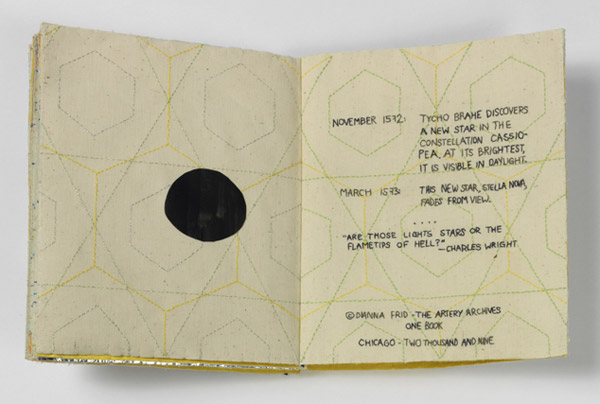 NOVEMBER 1572: TYCHO BRAHE DISCOVERS
A NEW STAR IN THE
CONSTELLATION CASSIO-
PEA. AT ITS BRIGHTEST,
IT IS VISIBLE IN DAYLIGHT.
MARCH 1573: THIS NEW STAR, STELLA NOVA,
FADES FROM VIEW.
....
"ARE THOSE LIGHTS STARS OR THE
FLAMETIPS OF HELL?"
—CHARLES WRIGHT
© DIANNA FRID - THE ARTERY ARCHIVES
ONE BOOK
CHICAGO - TWO THOUSAND AND NINE